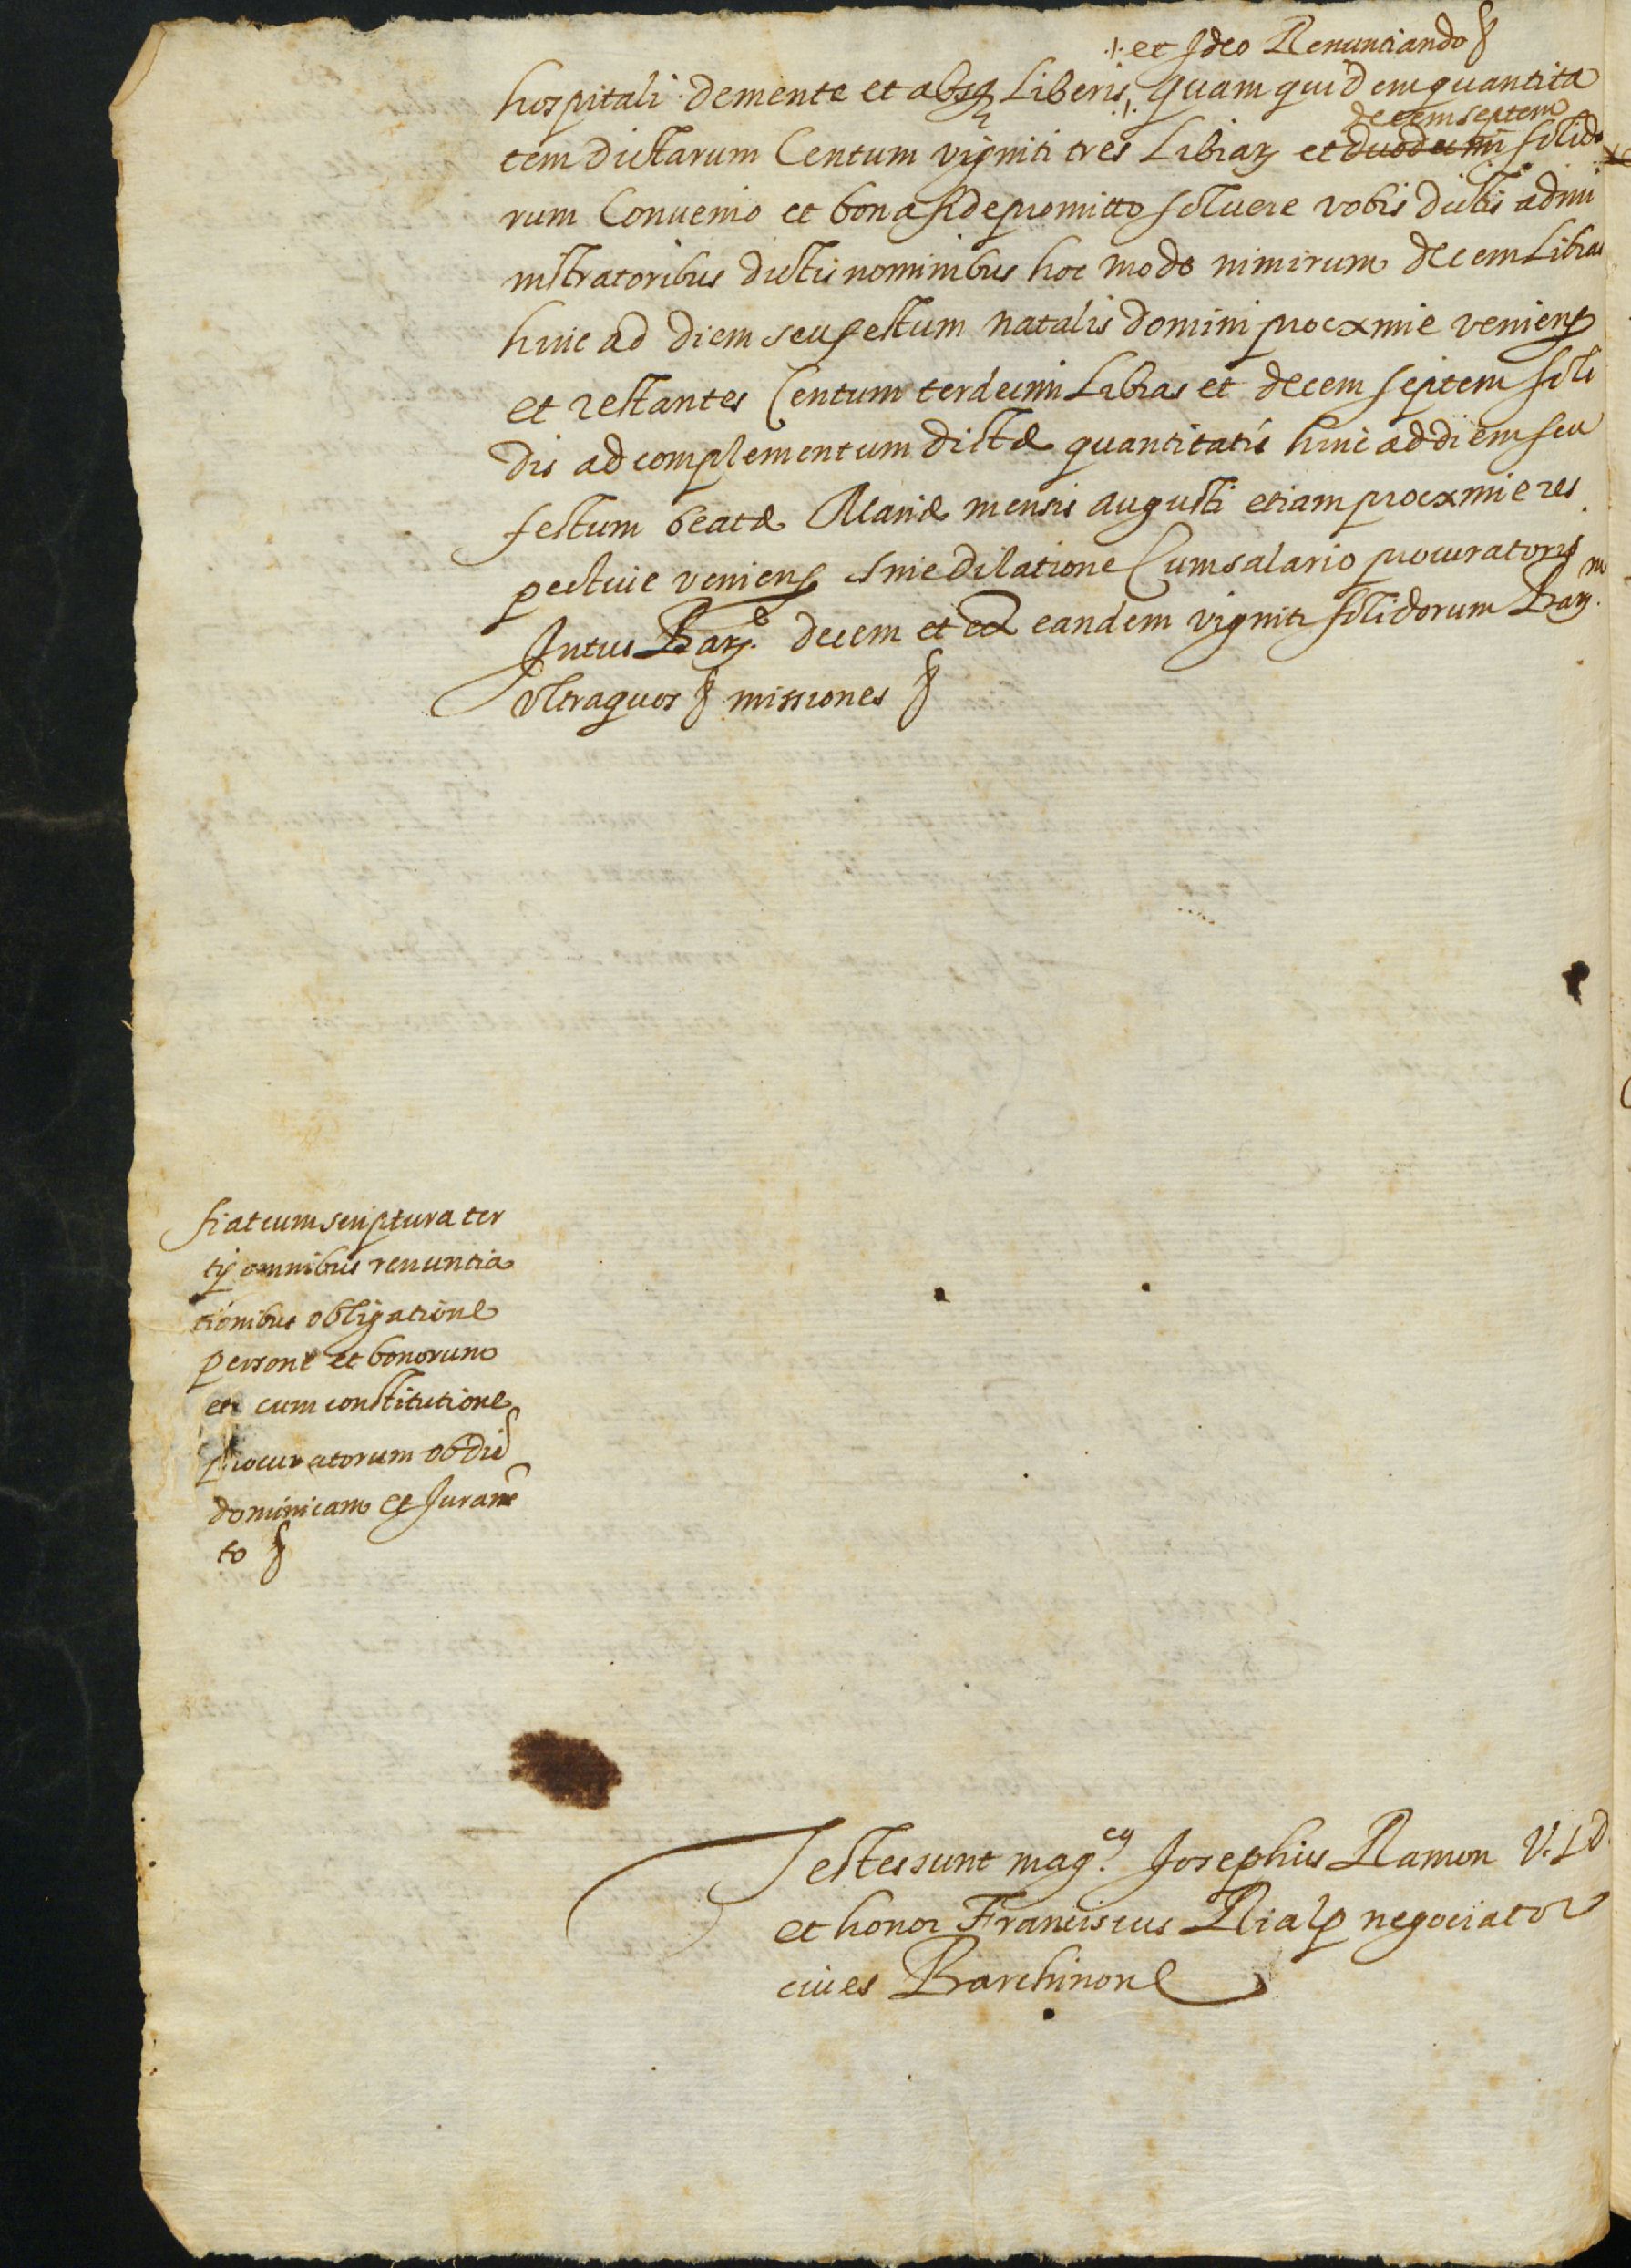 ·/· et Ideo Renunciando §
hospitali demente et absq Liberis ·/· quam quidem quantita
decem septem
tem dictarum Centum viginti tres Librarꝝ et duodecim solido
rum Convenio et bona fide promitto solvere vobis dictis admi
nistratoribus dictis nominibus hoc modo nimirum decem Libras
hinc ad diem seu festum natalis domini procxime venienꝭ
et restantes Centum terdecim Libras et decem septem soli
dis ad complementum dictæ quantitatis hinc ad diem seu
festum beatæ Mariæ mensis augusti etiam procxime res
pective venienꝭ sine dilatione Cum salario procuratoris
Intus Barꝝ. decem et ex eandem viginti solidorum Barꝝ.
Vltra quos § missiones §
fiat cum scriptura ter
tij omnibus renuntia
tionibus obligatione
persone et bonorum
et cum constitutione
procuratorum ob die
dominicam et Jurame
to §
Testes sunt mag.cy Josephus Ramon V. J. D.
et honor Franciscus Rialp negociator
cives Barchinone